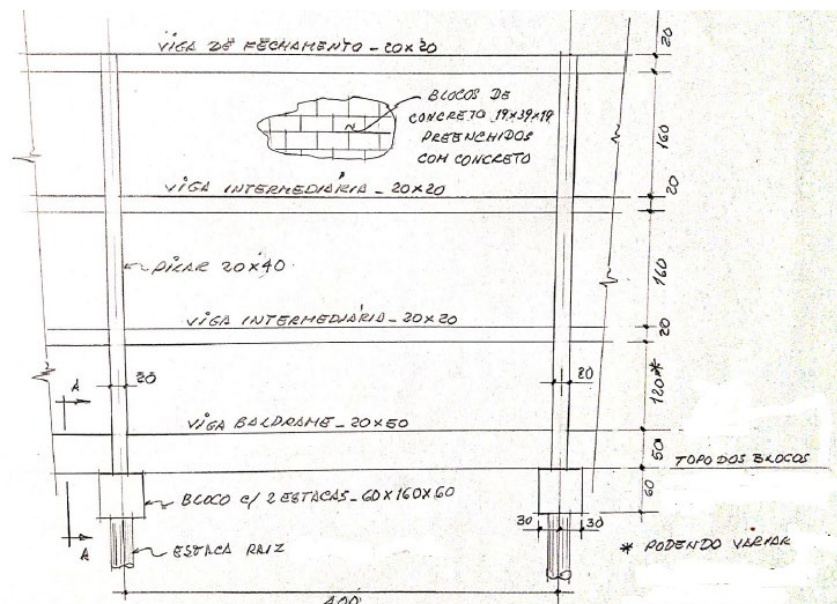 VIGA DE FECHAMENTO - 20x20
20
BLOCOS DE
CONCRETO 19x39x19
PREENCHIDOS
COM CONCRETO
160
VIGA INTERMEDIÁRIA - 20x20
20
PILAR 20x40
160
VIGA INTERMEDIÁRIA - 20x20
20
A
20
20
120*
VIGA BALDRAME - 20x50
50
TOPO DOS BLOCOS
BLOCO C/ 2 ESTACAS - 60x160x60
60
30
30
A
ESTACA RAIZ
* PODENDO VARIAR
400